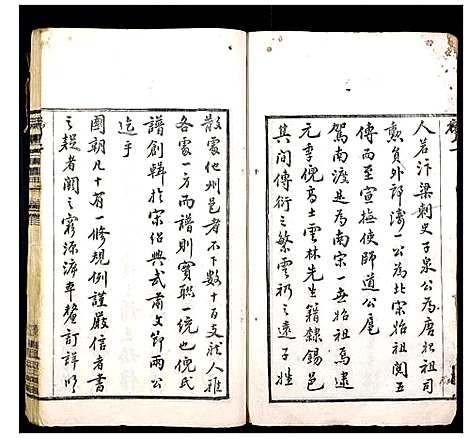 人差汴梁刺史子泉公為唐始祖司
勲員外郎濤一公為北宋始祖閲五
傳而至宣撫使師道公扈
駕南渡是為南宋一世始祖焉逮
元季倪高士雲林先生籍隸錫邑
其間傳衍之繁雲礽之遠子姓
散處他州邑者不下數十百支族人雖
各處一方而譜則實聯一統也倪氏
譜創輯於宋紹興武肅文節兩公
迄乎
國朝凡十有一修規例謹嚴信者書
之疑者闕之窮源溯本釐訂詳明